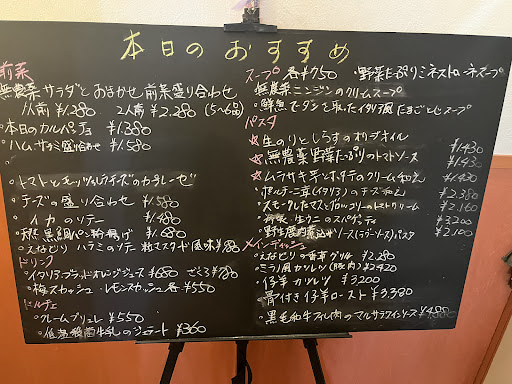 本日のおすすめ
前菜
無農薬サラダと おまかせ 前菜盛り合わせ
1人前 ¥1.280 2人前 ¥2.280 (5~6品)
・本日のカルパッチョ ¥1.380
・ハム サラミ盛合わせ ¥1.580
・トマトとモッツァレラチーズのカプレーゼ
・チーズの盛り合わせ ¥1.580
・イカのソテー ¥1.480
・天然真鯛パン粉揚げ ¥1.680
・えなどり ハラミのソテー 粒マスタード風味 ¥780
ドリンク
・イタリア ブラッドオレンジジュース ¥680
・梅スカッシュ・レモンスカッシュ 各 ¥550
ドルチェ
・クレームブリュレ ¥550
・低温殺菌牛乳のジェラート ¥360
スープ 各¥750 ・野菜たっぷりミネストローネスープ
・無農薬ニンジンのクリームスープ
・鮮魚でダシを取ったイタリア風たまごとじスープ
パスタ
☆生のりとしらすのオリーブオイル ¥1430
☆無農薬野菜たっぷりのトマトソース ¥1430
☆ムラサキ芋とホタテのクリーム和え ¥1430
・ポルチーニ茸(イタリア)のチーズ和え ¥2.380
・スモークしたマスとブロッコリーのトマトクリーム ¥2.160
生ウニのスパゲッティ ¥3200
・野生鹿肉煮込みソース(ラグーソース)パスタ ¥2.100
メインディッシュ
・えなどりの香草グリル ¥2.280
・ミラノ風カツレツ(豚肉) ¥2420
・仔羊カツレツ ¥3.200
・骨付き仔羊ロースト ¥3.380
・黒毛和牛フィレ肉のマルサラワインソース